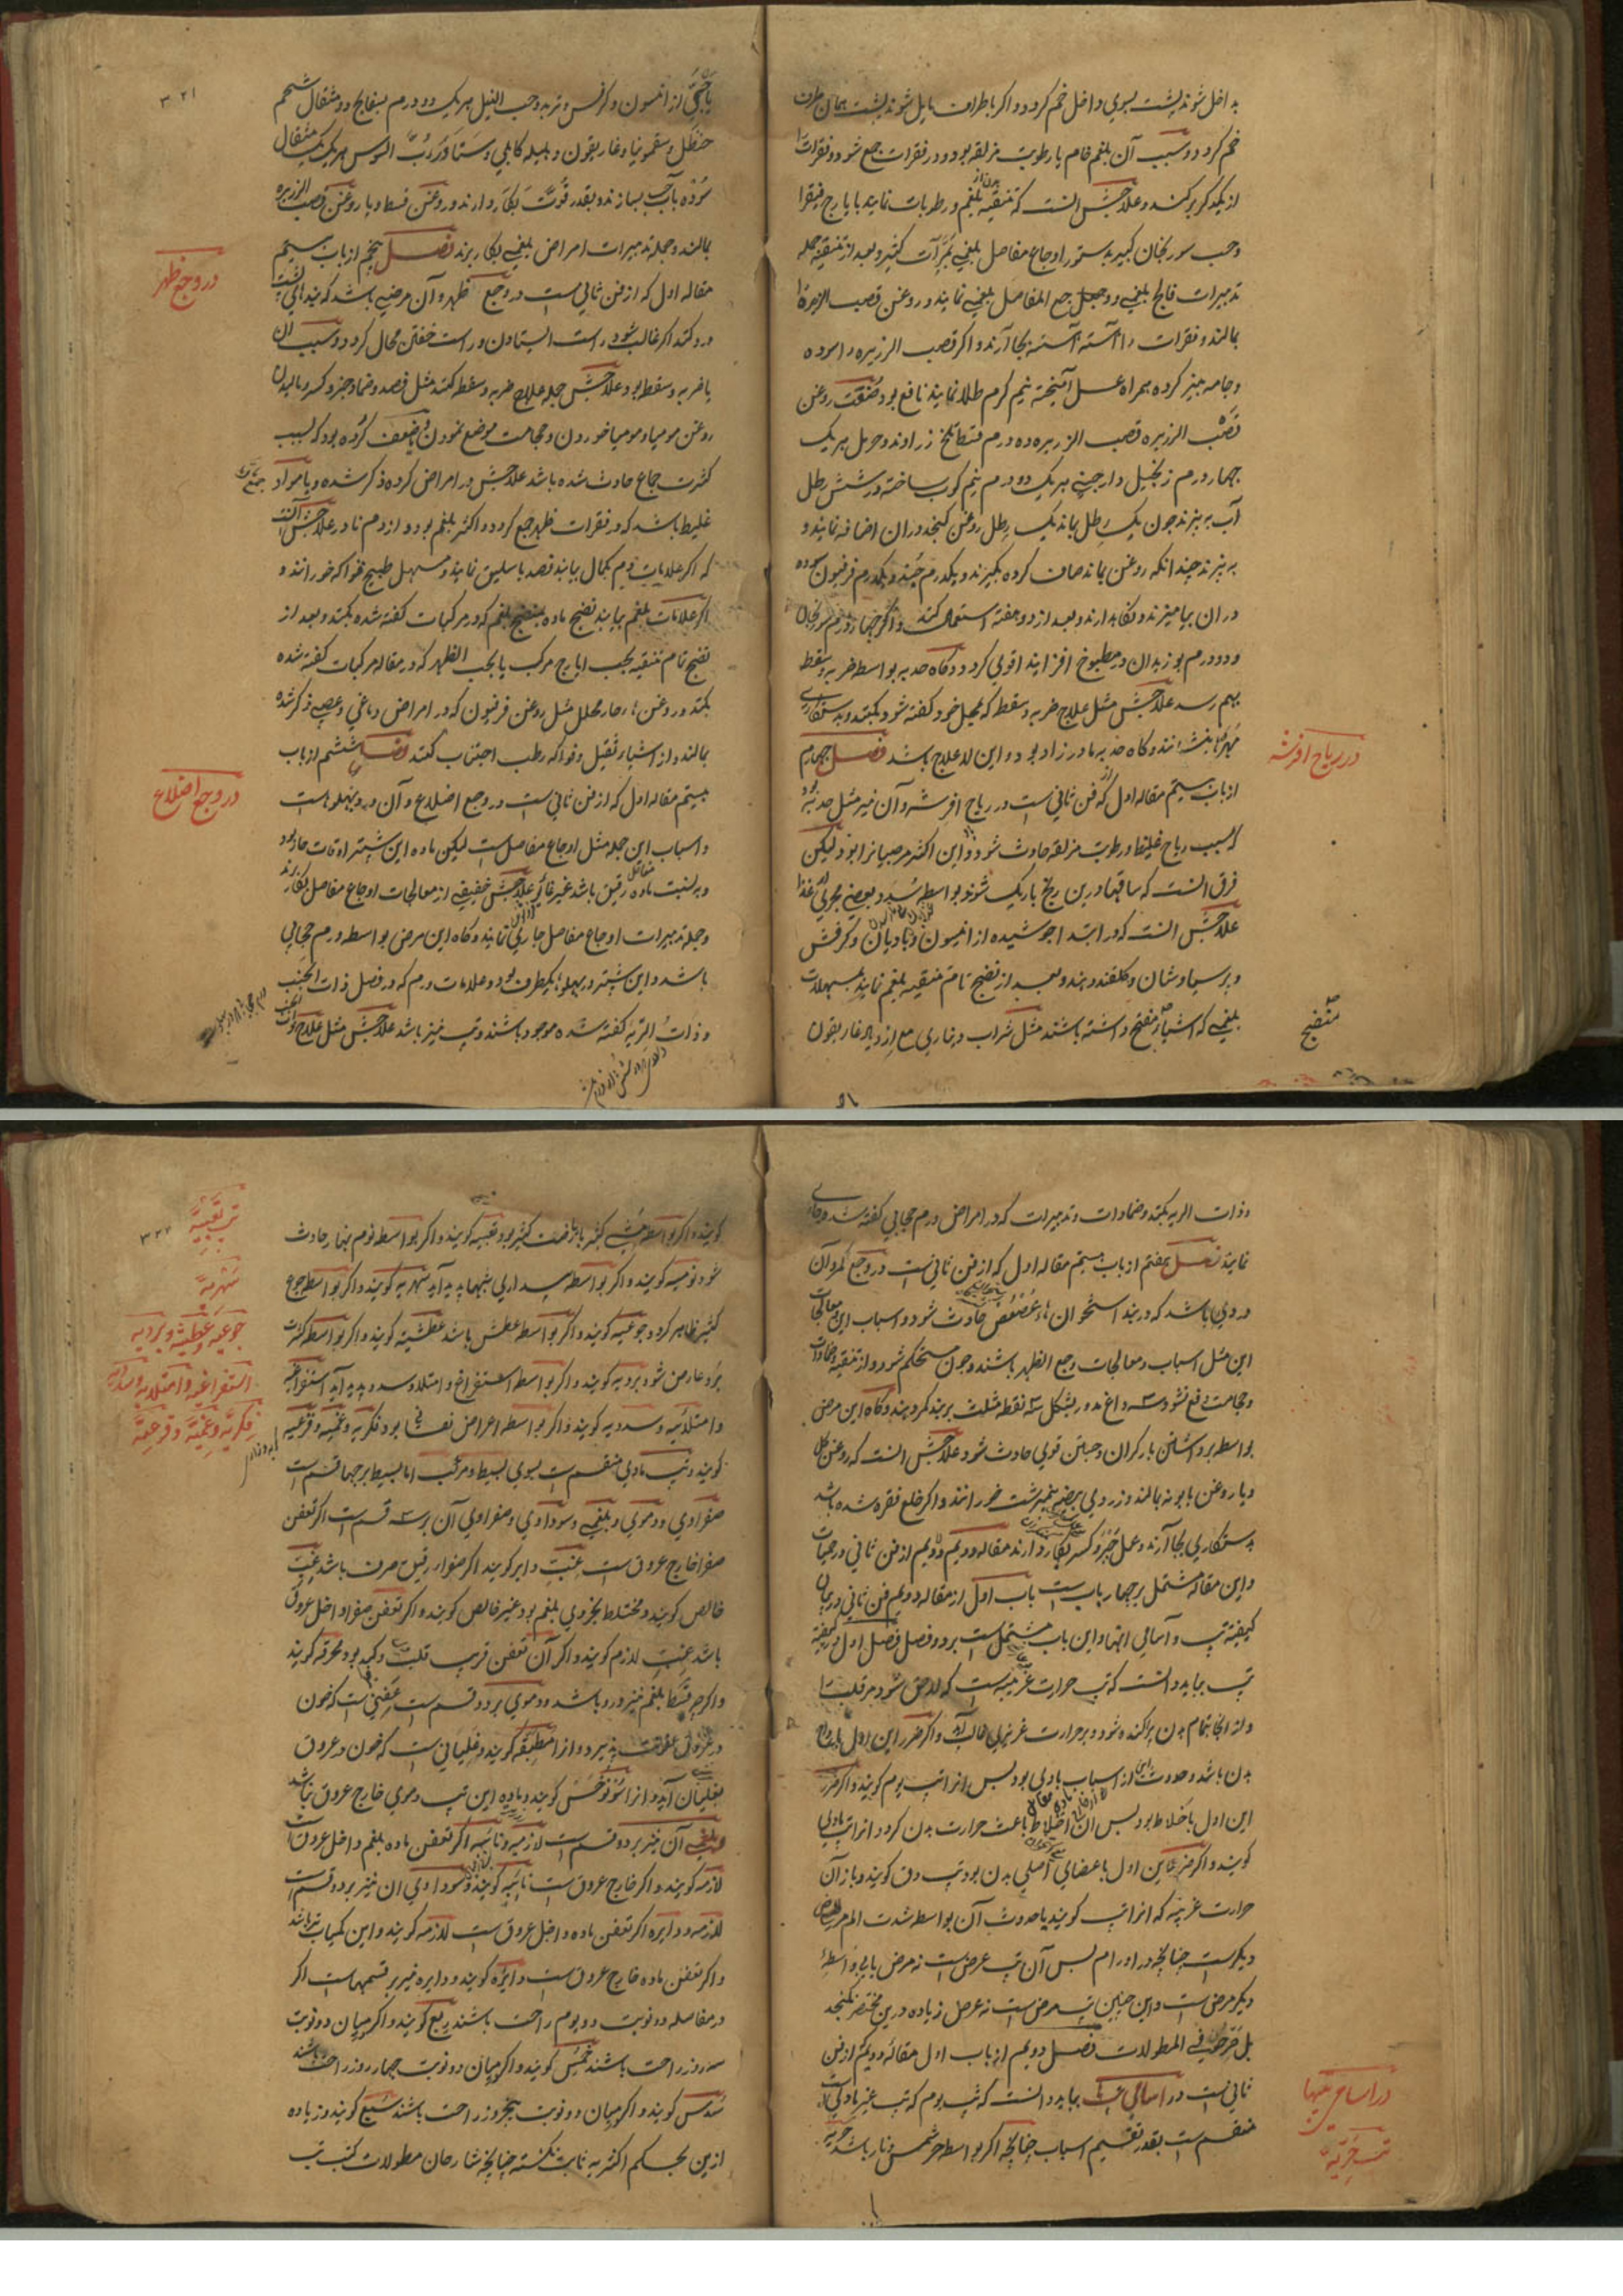 بداخل شوند پشت بسوی داخل خم کردد و اکر باطراف مایل شوند پشت بهمان طرف
خم کردد و سبب آن بلغم خام یا رطوبت مزلقه بود و در فقرات جمع شود و فقرات را
از یکدکر برکند و علاجش آنست که تنقیه بلغم و رطوبات نمایند بایارج فیقرا
وحب سورنجان کبیر بدستور اوجاع مفاصل بلغمی بمرات کثیر و بعد از تنقیه جمله
تدبیرات فالج بلغمی و وجع المفاصل بلغمی نمایند و روغن قصب الزریره را
بمالند و فقرات را آهسته آهسته بجا آرند و اکر قصب الزریره را سوده
و جامه بیز کرده همراه عسل آمیخته نیم کرم طلا نمایند نافع بود صنعت روغن
قصب الزریره قصب الزریره ده درم قسط تلخ زراوند و حرمل هریک
چهار درم زنجبیل دارچینی هریک دو درم نیم کوب ساخته در شش رطل
آب بپزند چون یک رطل بماند یک رطل روغن کنجد در آن اضافه نمایند و
بپزند چندانکه روغن بماند صاف کرده بکیرند و یکدرم جند و یکدرم فرفیون سوده
در آن بیامیزند و نکاهدارند و بعد از دو هفته استعمال کنند و اکر چهار درم سورنجان
و دو درم بوزیدان در مطبوخ افزایند اقوی کردد و کاه حدبه بواسطه ضربه و سقطه
بهم رسد علاجش مثل علاج ضربه و سقطه که بمحل خود کفته شود بکنند و بدستکاری
مهره را بنشانند و کاه حدبه مادرزاد بود و این لاعلاج باشد فصل چهارم
از باب بیستم مقاله اول که از فن ثانی است در ریاح افرسه و آن نیز مثل حدبه بود
که بسبب ریاح غلیظ و رطوبت مزلقه حادث شود و این اکثر مر صبیانرا بود لیکن
فرق آنست که ساقها درین رنج باریک شوند بواسطه سد و بعضی مجرای غذا
علاجش آنست که در ابتدا جوشیده از انیسون و بادیان و کرفس
و پرسیاوشان و کلقند دهند و بعد از نضج تام تنقیه بلغم نمایند بمسهلات
بلغمی که اشیاء مفتح داشته باشند مثل شراب دیناری مع ازدیاد غاریقون
در ریاح افرسه
منضج
۳۲۱
یا حبی از انیسون و کرفس و تربد و حب النیل هریک دو درم بسفایج دو مثقال شحم
حنظل و سقمونیا و غاریقون و هلیله کابلی و سنا و رب السوس هریک یک مثقال
سوده بآب حب بسازند و بقدر قوت بکار دارند و روغن قسط و یا روغن قصب الزریره
بمالند و جمله تدبیرات امراض بلغمی بکار برند فصل پنجم از باب بیستم
مقاله اول که از فن ثانی است در وجع ظهر و آن مرضی باشد که میدانی پشت
درد کند اکر غالب شود راست ایستادن و راست خفتن محال کردد و سبب آن
یا ضربه و سقطه بود علاجش جمله علاج ضربه و سقطه کنند مثل فصد و ضماد و جبر و کسر و مالیدن
روغن مومیا و مومیا خوردن و حجامت موضع نمودن و یا ضعف کرده بود که بسبب
کثرت جماع حادث شده باشد علاجش در امراض کرده ذکر شده و یا مواد
غلیظ باشد که در فقرات ظهر جمع کردد و اکثر بلغم بود و از دم نادر علاجش آنست
که اکر علامات دم بکمال بیابند فصد باسلیق نمایند و مسهل طبیخ فواکه خورانند و
اکر علامات بلغم بیابند نضج ماده بمنضج بلغم که در مرکبات کفته شده بکنند و بعد از
نضج تام تنقیه بحب ایارج مرکب یا بحب الظهر که در مقاله مرکبات کفته شده
بکنند و روغنهاء حار محلل مثل روغن فرفیون که در امراض دماغی و عصبی ذکر شده
بمالند و از اشیاء ثقیل و فواکه رطب اجتناب کنند فصل ششم از باب
بیستم مقاله اول که از فن ثانی است در وجع اضلاع و آن درد پهلوهاست
و اسباب این جمله مثل اوجاع مفاصل است لیکن ماده این بیشتر اوقات حاد بود
و به نسبت ماده مفاصل رقیق باشد غیر غائر علاجش خفیفی از معالجات اوجاع مفاصل بکار برند
و جمله تدبیرات اوجاع مفاصل جاری نمایند و کاه این مرض بواسطه ورم حجابی
باشد و این بیشتر در پهلو بیکطرف بود و علامات ورم که در فصل ذات الجنب
و ذات الریه کفته شده موجود باشند و تب نیز باشد علاجش مثل علاج ذات الجنب
در وجع ظهر
در وجع اضلاع
و ذات الریه بکنند و ضمادات و تدبیرات که در امراض ورم حجابی کفته شد جاری
نمایند فصل هفتم از باب بیستم مقاله اول که از فن ثانی است در وجع کمر و آن
دردی باشد که در بند استخوانهاء عصعص حادث شود و اسباب این و معالجات
این مثل اسباب و معالجات وجع الظهر باشند و چون مستحکم شود و از تنقیه و ضمادات
و حجامت دفع نشود سه داغ مدور بشکل سه نقطه مثلث بر بند کمر دهند و کاه این مرض
بواسطه برداشتن بار کران و جستن قوی حادث شود علاجش آنست که روغن کل
و یا روغن بابونه بمالند و زردی بیضه نیمبرشت خورانند و اکر خلع فقره شده باشد
بدستکاری بجا آرند و عمل جبر و کسر بکار دارند مقاله دویم از فن ثانی در حمیات
و این مقاله مشتمل بر چهار باب است باب اول از مقاله دویم فن ثانی در بیان
کیفیت تب و اسامی انها و این باب مشتمل است بر دو فصل فصل اول در کیفیت
تب بباید دانست که تب حرارت غریبه است که لاحق شود مر قلب را
و از انجا بتمام بدن پراکنده شود و بر حرارت غریزی غالب آید و اکر ضرر این اول بارواح
بدن باشد و حدوث این از اسباب بادی بود پس انرا تب یوم کویند و اکر ضرر
این اول باخلاط بود پس ان اخلاط باعث حرارت بدن کردد انرا تب مادی
کویند و اکر ضرر این اول باعضای اصلی بدن بود تب دق کویند و باز آن
حرارت غریبه که انرا تب کویند یا حدوث آن بواسطه شدت الم مرض
دیکرست چنانچه در اورام پس آن تب عرض است نه مرض یا بی واسطه
دیکر مرض است و این چنین تب مرض است نه عرض زیاده درین مختصر نکنجد
بل شرحه فی المطولات فصل دویم از باب اول مقاله دویم از فن
ثانی است در اسامی تبها بباید دانست که تب یوم که تب غیر مادی است
منقسم است بقدر تقسیم اسباب چنانچه اکر بواسطه حر شمس و نار باشد حریه
در اسامی تبها
تب حریه
۳۲۲
کویند و اکر بواسطه مشی کثیر یا ریاضت کثیر بود تعبیه کویند و اکر بواسطه نوم بنهار حادث
شود نومیه کویند و اکر بواسطه بیداری شبها پدید آید سهریه کویند و اکر بواسطه جوع
کثیر ظاهر کردد جوعیه کویند و اکر بواسطه عطش باشد عطشیه کویند و اکر بواسطه کثرت
برد عارض شود بردیه کویند و اکر بواسطه استفراغ و امتلا و سده پدید آید استفراغیه
و امتلائیه و سددیه کویند و اکر بواسطه اعراض نفسانی بود فکریه و غمیه و فزعیه
کویند و تب مادی منقسم است بسوی بسیط و مرکب اما بسیط بر چهار قسم است
صفراوی و دموی و بلغمی و سوداوی و صفراوی آن بر سه قسم است اکر تعفن
صفرا خارج عروق است غب دایر کویند اکر صفراء رقیق صرف باشد غب
خالص کویند و مختلط بجزوی بلغم بود غیر خالص کویند و اکر تعفن صفرا داخل عروق
باشد غب لازم کویند و اکر آن تعفن قریب قلب و کبد بود محرقه کویند
واکرچه قسط بلغم نیز درو باشد و دموی بر دو قسم است عفنی است که خون
در عروق عفونت پذیرد و انرا مطبقه کویند و غلیانی است که خون در عروق
بغلیان آید و انرا سونوخس کویند و ماده این تب دموی خارج عروق نباشد
بلغمی آن نیز بر دو قسم است لازمه و نائبه اکر تعفن ماده بلغم داخل عروق است
لازمه کویند و اکر خارج عروق است نائبه کویند و سوداوی ان نیز بر دو قسم است
لازمه و دایره اکر تعفن ماده داخل عروق است لازمه کویند و این کمیاب تر باشد
و اکر تعفن ماده خارج عروق است دایره کویند و دایره نیز بر قسمهاست اکر
در فاصله دو نوبت دو یوم راحت باشند ربع کویند و اکر میان دو نوبت
سه روز راحت باشند خمس کویند و اکر میان دو نوبت چهار روز راحت باشند
سدس کویند و اکر میان دو نوبت پنج روز راحت باشند سبع کویند و زیاده
ازین بحکم اکثر به ثابت نکشته چنانچه شارحان مطولات کتب تب
تب تعبیه
سهریه
جوعیه و عطشیه و بردیه
استفراغیه و امتلائیه و سددیه
فکریه و غمیه و فزعیه